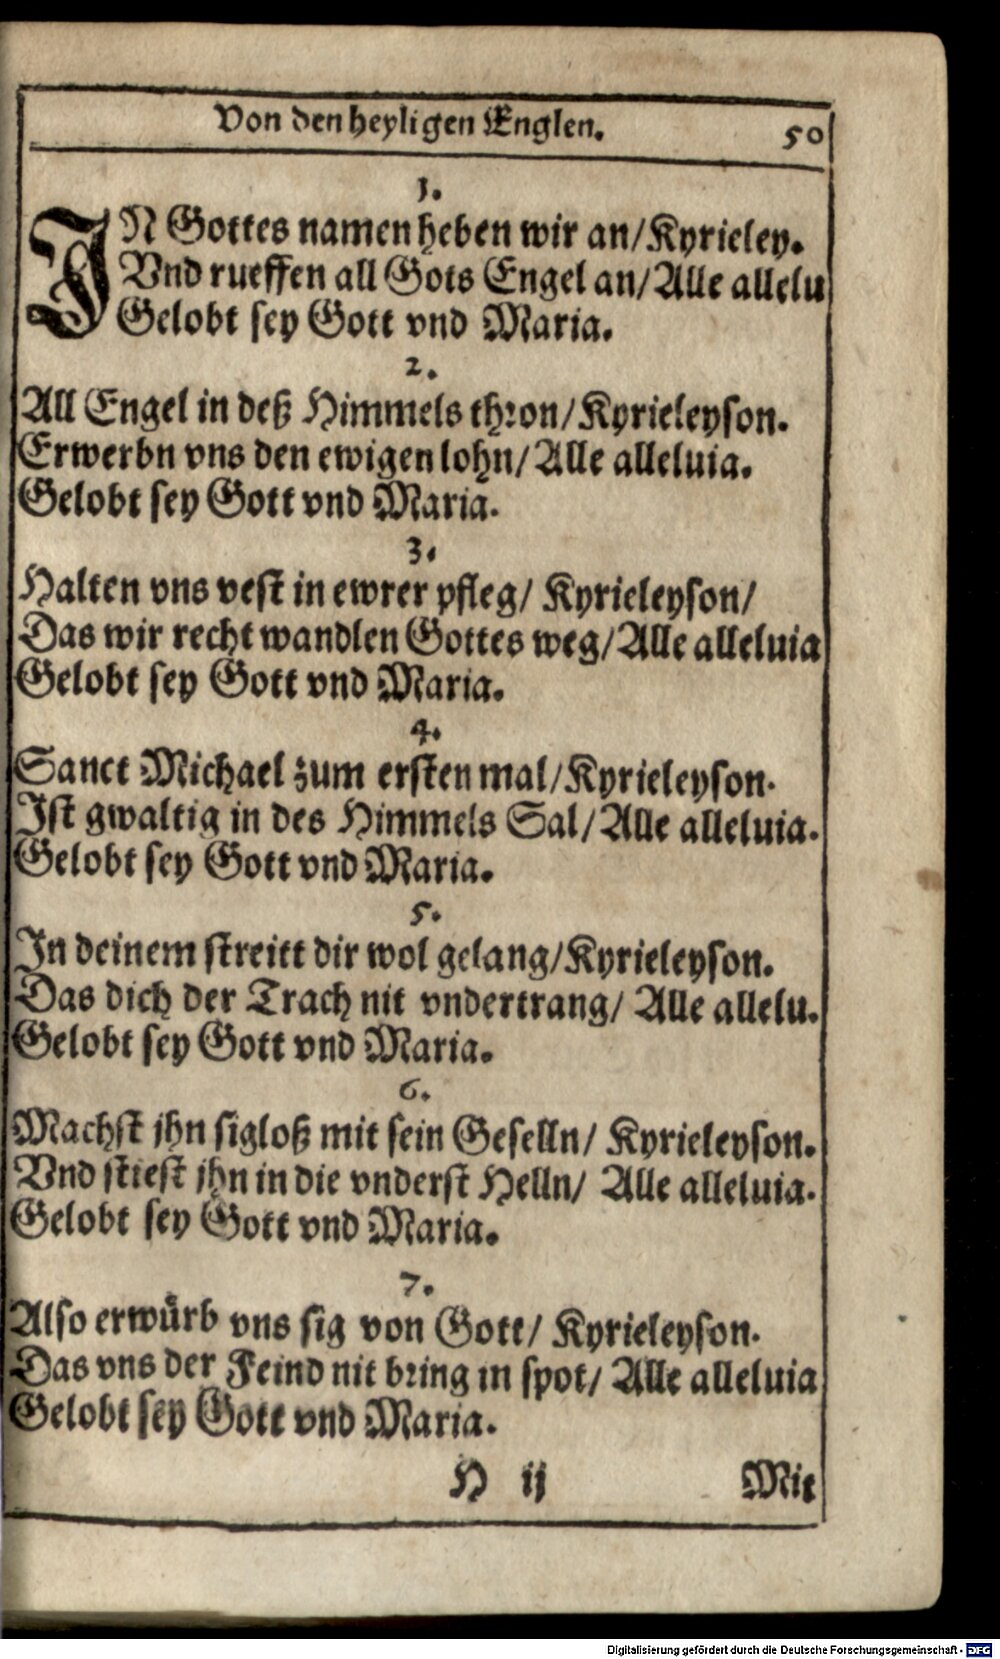 Von den heyligen Englen.
50
1.
IN Gottes namen heben wir an/Kyrieley.
Vnd rueffen all Gots Engel an/Alle allelu
Gelobt sey Gott vnd Maria.
2.
All Engel in deß Himmels thron/Kyrieleyson.
Erwerbn vns den ewigen lohn/Alle alleluia.
Gelobt sey Gott vnd Maria.
3.
Halten vns vest in ewrer pfleg/ Kyrieleyson/
Das wir recht wandlen Gottes weg/Alle alleluia
Gelobt sey Gott vnd Maria.
4.
Sanct Michael zum ersten mal/Kyrieleyson.
Ist gwaltig in des Himmels Sal/Alle alleluia.
Gelobt sey Gott vnd Maria.
5.
In deinem streitt dir wol gelang/Kyrieleyson.
Das dich der Trach nit vndertrang/ Alle allelu.
Gelobt sey Gott vnd Maria.
6.
Machst jhn sigloß mit sein Geselln/ Kyrieleyson.
Vnd stiest jhn in die vnderst Helln/ Alle alleluia.
Gelobt sey Gott vnd Maria.
7.
Also erwürb vns sig von Gott/ Kyrieleyson.
Das vns der Feind nit bring in spot/ Alle alleluia
Gelobt sey Gott vnd Maria.
H ij
Mit
Digitalisierung gefördert durch die Deutsche Forschungsgemeinschaft - DFG